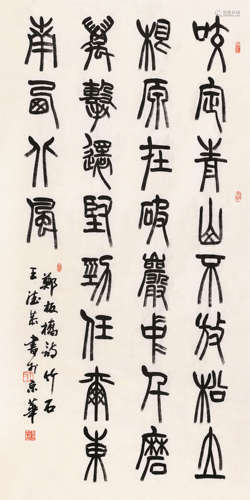 咬定青山不放松立
根原在破巖中千磨
萬擊還堅勁任爾東
南西北風
鄭板橋詩竹石
王德恭書於京華